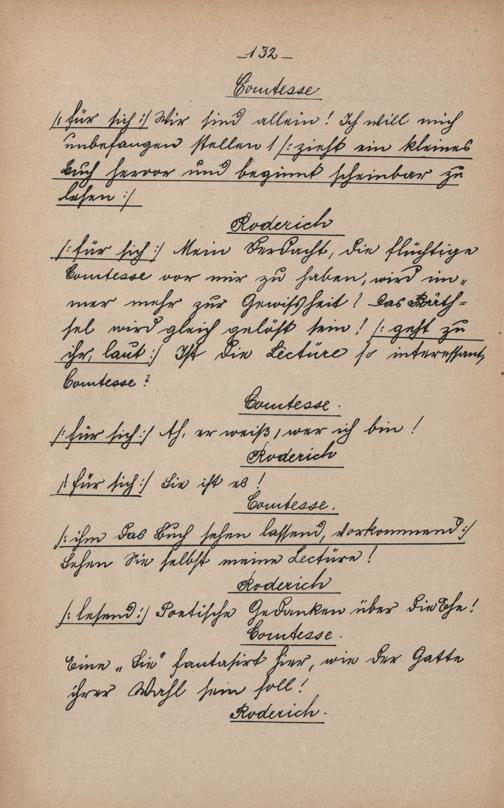 —132—
Comtesse
/: für sich :/ Wir sind allein! Ich will mich
unbefangen stellen! /: zieht ein kleines
Buch hervor und beginnt scheinbar zu
lesen :/
Roderich
/: für sich :/ Mein Verdacht, die flüchtige
Comtesse vor mir zu haben, wird im„
mer mehr zur Gewißheit! Das Räth=
sel wird gleich gelöst sein! /: geht zu
ihr, laut :/ Ist die Lectüre so interessant,
Comtesse?
Comtesse.
/: für sich :/ Ah, er weiß, wer ich bin!
Roderich
/: für sich :/ Sie ist es!
Comtesse.
/: ihm das Buch sehen lassend, vorkommend :/
Sehen Sie selbst meine Lectüre!
Roderich
/: lesend :/ Poetische Gedanken über die Ehe!
Comtesse.
Eine „Sie" fantasirt hier, wie der Gatte
ihrer Wahl sein soll!
Roderich.